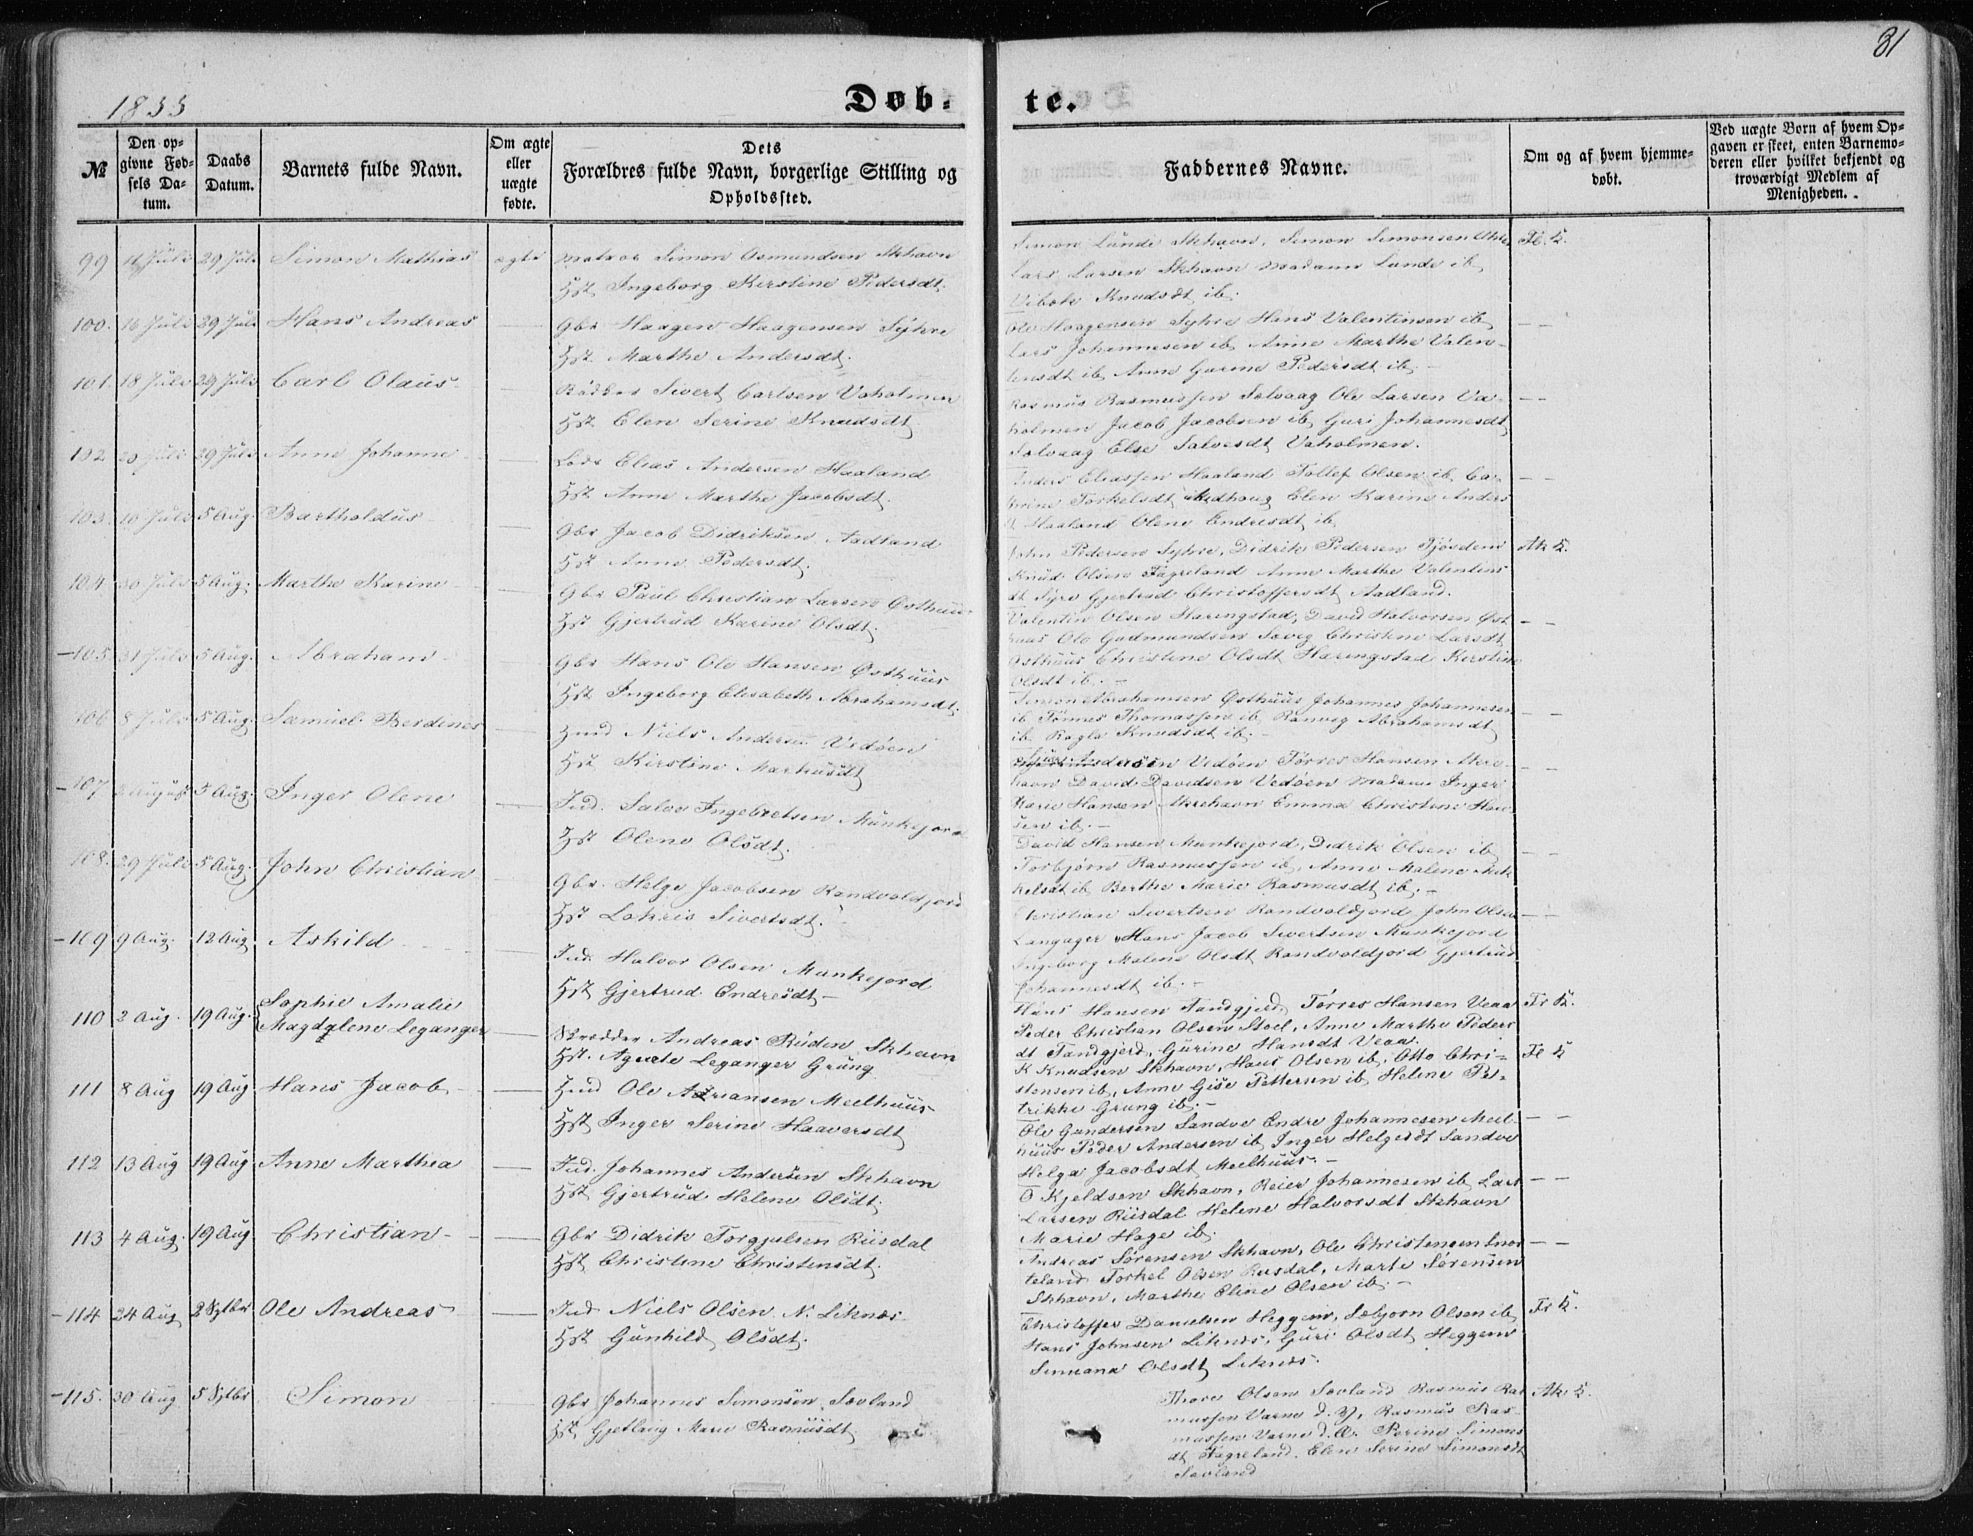 31
1855
Døb-
te.
№
Den opgivne Fødsels Datum.
Daabs Datum.
Barnets fulde Navn.
Om ægte eller uægte fødte.
Dets Forældres fulde Navn, borgerlige Stilling og Opholdssted.
Faddernes Navne.
Om og af hvem hjemmedøbt.
Ved uægte Børn af hvem Opgaven er skeet, enten Barnemoderen eller hvilket bekjendt og troværdigt Medlem af Menigheden.
99 29 Juli Simon Mathias ægte Matros Simon Asmundsen Skhavn
Hst Ingeborg Kirstine Pedersdt.
Simon Lunde Skhavn, Simon Simonsen
Lars Larsen Skhavn Madam Lunde ib
Knudsdt ib.
100. 16 Juli 29 Juli Hans Andreas Gbr Haagen Haagensen Syhre
Hst Marthe Andersdt.
Ole Haagensen Syhre Hans Valentinsen ib
Lars Johannesen ib Anne Marthe Valen-
tinsdt ib Anne Gurine Pedersdt ib
101. 18 Juli 29 Juli Carl Olaus Bødker Sivert Carlsen Vaholmen
Hst Elen Serine Knudsdt
Rasmus Rasmussen Solvaag Ole Larsen Va-
holmen Jacob Jacobsen ib Guri Johannesdt
Solvaag Else Salvesdt Vaholmen.
102 20 Juli 29 Juli Anne Johanne Lods Elias Andersen Haaland
Hst Anne Marthe Jacobsdt.
Anders Eliassen Haaland Tollef Olsen ib
Torkelsdt Elen Karine Anders
Haaland Olene Endresdt ib
103. 10 Juli 5 Aug. Bartholdus Gbr Jacob Didriksen Aadland
Hst Anne Pedersdt.
John Pedersen Syhre, Didrik Pedersen
Knud Olsen Fagreland Anne Marthe Valentins
dt Syre Gjertrud Christoffersdt Aadland.
104 30 Juli 5 Aug. Marthe Karine Gbr Paul Christian Larsen Østhuus
Hst Gjertrud Karine Olsdt.
Valentin Olsen Haringstad, David Halvorsen Øst
huus Ole Gudmundsen Christine Larsdt
Østhuus Christine Olsdt Haringstad Kirstine
Olsdt ib.
105. 31 Juli 5 Aug. Abraham Gbr Hans Ole Hansen Østhuus
Hst Ingeborg Elisabeth Abrahamsdt.
Simon Abrahamsen Østhuus Johannes Johannesen
ib Tønnes Thomassen ib Ranveg Abrahamsdt
ib Knudsdt ib.
106 8 Juli 5 Aug. Samuel Berdines Huus Niels Andersen Vedøen
Hst Kirstine Marhusdt
Andersen Vedøen Tørres Hansen Akre-
havn David Davidsen Vedøen Madame Inger
Marie Hansen Akrehavn Emma Christine Han-
sen ib.
107 August 5 Aug. Inger Olene Ind. Salve Ingebretsen Munkejord
Hst Olene Olsdt.
David Hansen Munkejord, Didrik Olsen ib
Torbjørn Rasmussen ib, Anne Malene Mik
kelsdt ib Berthe Marie Rasmusdt ib.
108. 29 Juli 5 Aug. John Christian Gbr. Helge Jacobsen Randvoldjord
Hst Sivertsdt.
Christian Sivertsen Randvoldjord John Olsen
Langager Hans Jacob Sivertsen Munkejord
Ingeborg Malene Olsdt Randvoldjord Gjertrud
Johannesdt ib.
109 9 Aug. 12 Aug Askild Ind. Halvor Olsen Munkejord
Hst Gjertrud Endresdt
Hans Hansen Tandgjerd, Tørres Hansen Veaa
Peder Christian Olsen Stoel, Anne Marthe Peders
dt Tandgjerd, Gurine Hansdt Veaa.
110 2 Aug. 19 Aug. Sophie Amalie
Magdalene Leganger Skredder Andreas Rüden Skhavn
Hst. Agate Leganger Grung
K Knudsen Skhavn, Hans Olsen ib, Otto Chri-
stensen ib, Anne Gise Pettersen ib Helene Pet-
trikke Grung ib.
111 8 Aug 19 Aug Hans Jacob Huus Ole Adriansen Meelhuus
Hst Inger Serine Haaversdt
Ole Gundersen Sandve Endre Johannesen Meel-
huus Peder Andersen ib Inger Helgesdt Sandve
Helga Jacobsdt Meelhuus.
112 13 Aug 19 Aug Anne Marthea Ind. Johannes Andersen Skhavn
Hst Gjertrud Helene Olsdt.
O Kjeldsen Skhavn, Reier Johannesen ib Lars
Larsen Riisdal Helene Halvorsdt Skhavn
Marie Hage ib.
113 4 Aug. 19 Aug Christian Gbr Didrik Torgjulsen Riisdal
Hst Christine Christensdt.
Andreas Sørensen Skhavn, Ole Christensen Snor
teland Torkel Olsen Riisdal, Marte Sørensen
Skhavn, Marthe Eline Olsen ib.
114 24 Aug 2 Sptbr Ole Andreas Ind. Niels Olsen N. Liknes
Hst Gunhild Olsdt.
Christoffer Danielsen Heggem, Sebjørn Olsen ib
Hans Johnsen Liknes, Guri Olsdt Heggem
Olsdt Liknes.
115. 30 Aug 5 Sptbr Simon Gbr Johannes Simonsen Sovland
Hst Gjetlaug Marie Rasmusdt
Thore Olsen Sovland Rasmus Ras
mussen Varne d. Y, Rasmus Ras-
mussen Varne d. Æ. Serine Simons
dt Fagreland. Elen Serine Simonsdt
Sovland